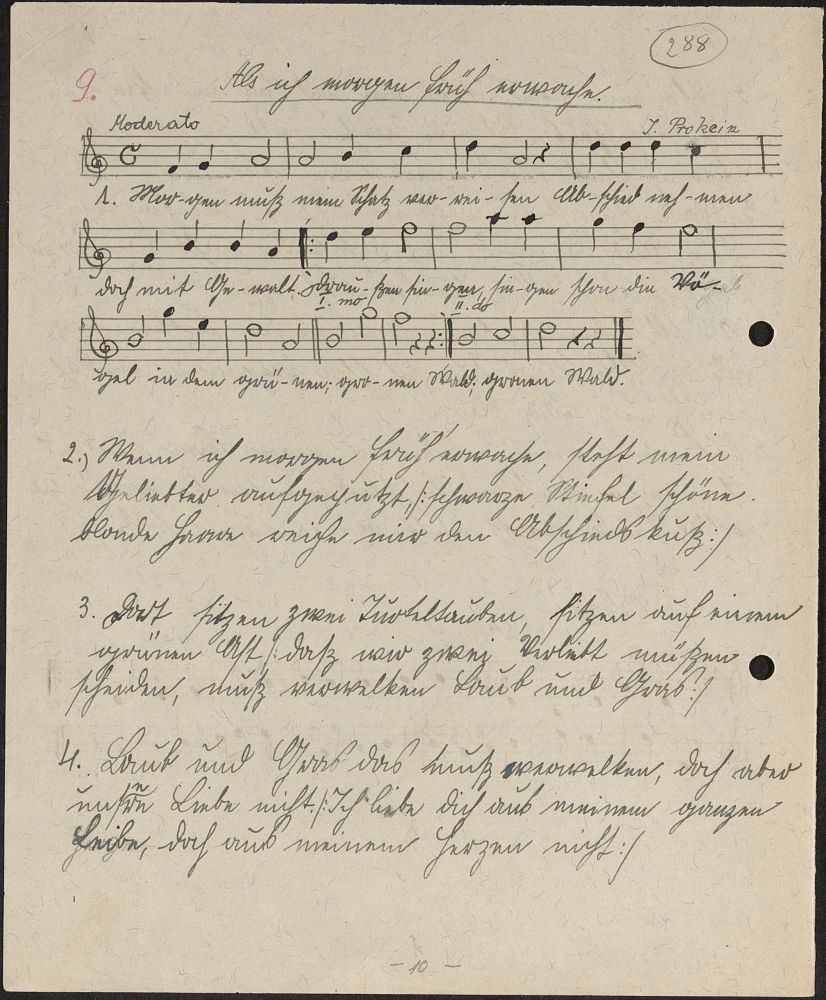 288
9.
Als ich morgen früh erwache.
Moderato
J. Prokein
1. Mor-gen muß mein Schatz ver-rei-sen Ab-schied neh-men
doch mit Ge-walt. Drau-ßen sin-gen, sin-gen schon die Vö-
I. mo II. do
gel in dem grü-nen; grü-nen Wald; grünen Wald.
2.) Wenn ich morgen früh erwache, steht mein
Geliebter aufgeputzt, /: schwarze Stiefel schöne
blonde Haare reiche mir den Abschiedskuß :/
3. Dort sitzen zwei Turteltauben, sitzen auf einem
grünen Ast /: daß wir zwei Verliebt müßen
scheiden, muß verwelken Laub und Gras :/
4. Laub und Gras das muß verwelken, doch aber
unsre Liebe nicht. /: Ich liebe dich aus meinem ganzen
Leibe, doch aus meinem Herzen nicht :/
- 10 -